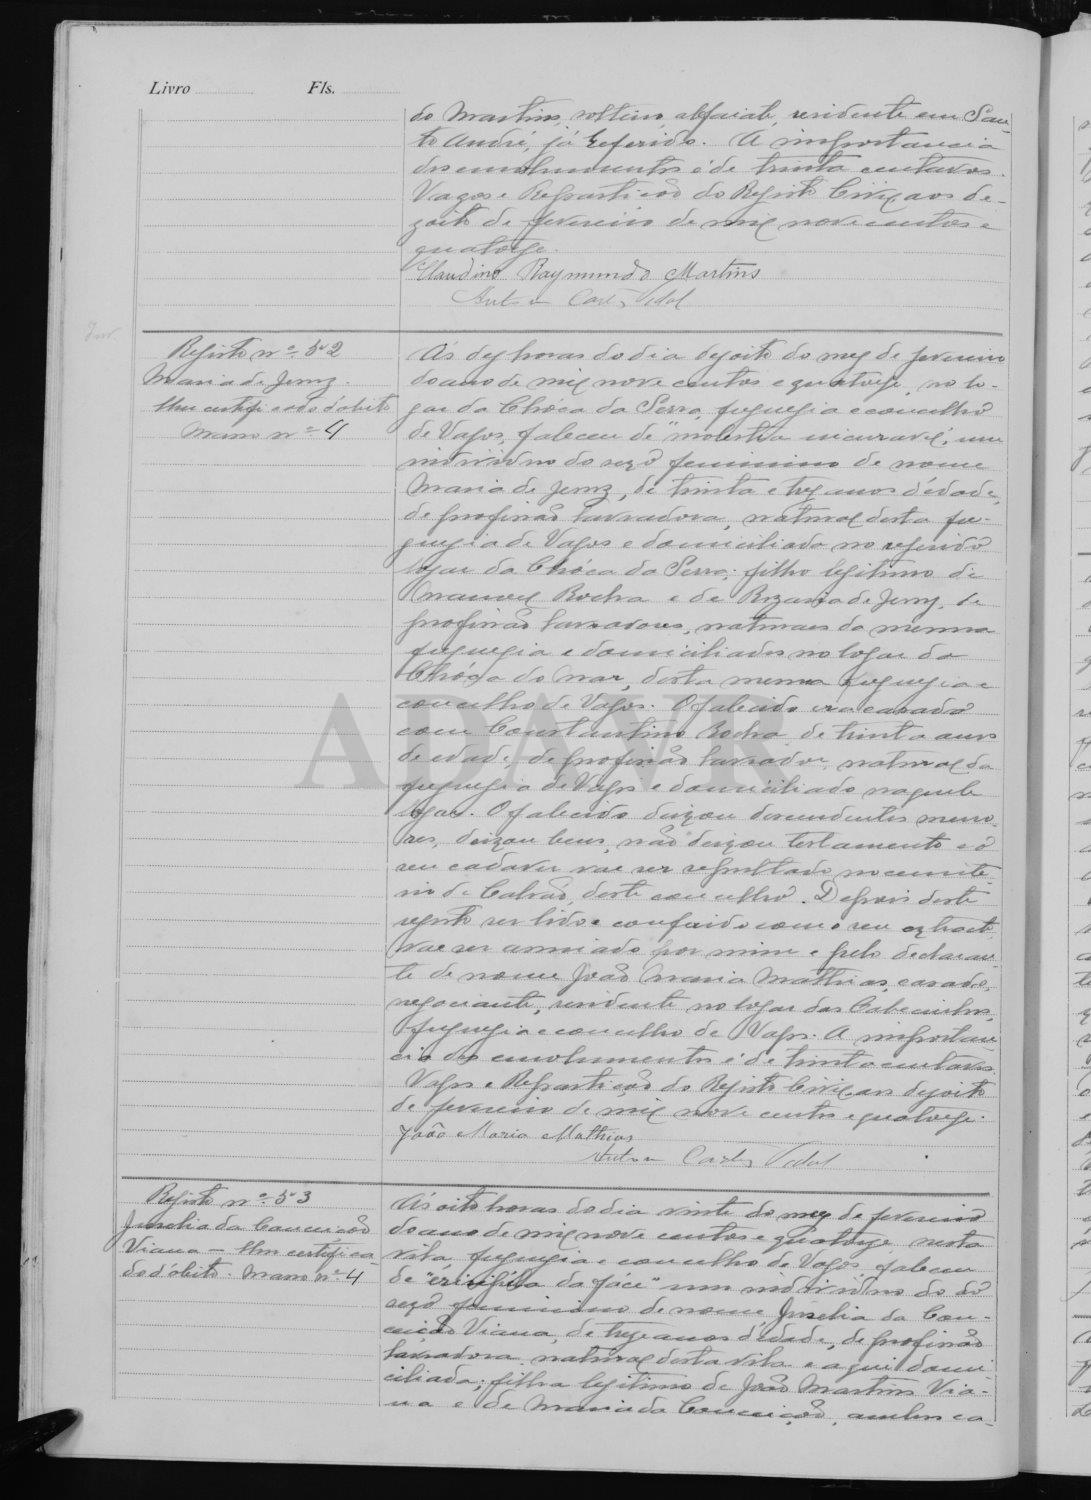 Livro Fls.
do Martins, solteiro, alfaiate, residente em San-
to André, já referido. A importancia
dos emolumentos é de trinta centavos.
Vagos e Repartição do Registo Civil aos de-
zoito de fevereiro de mil novecentos e
quatorze.
Claudino Raymundo Martins
Antonio Carlos Vidal
Registo nº 52
Maria de Jesus.
Um certificado d'obito
Masso nº 4
Ás dez horas do dia dezoito do mez de fevereiro
do anno de mil nove centos e quatorze, no lo-
gar da Chóca da Serra, freguezia e concelho
de Vagos, faleceu de "molestia incuravel", um
individuo do sexo feminino de nome
Maria de Jesus, de trinta e trez anos d'edade,
de profissão lavradora, natural desta fre-
guezia de Vagos e domiciliada no referido
logar da Chóca da Serra; filho legitimo de
Manuel Rocha e de Rozaria de Jesus, de
profissão lavradores, naturaes da mesma
freguezia e domiciliados no logar da
Chóça do Mar, desta mesma freguezia e
concelho de Vagos. O falecido era casado
com Constantino Rocha, de trinta anos
de edade, de profissão lavrador, natural da
freguezia de Vagos e domiciliado naquele
logar. O falecido deixou descendentes meno-
res, deixou bens, não deixou testamento e o
seu cadaver vae ser sepultado no cemite-
rio de Calvão, deste concelho. Depois deste
registo ser lido e conferido com o seu extracto
vae ser assinado por mim e pelo declaran-
te de nome João Maria Mathias, casado,
negociante, residente no logar das Cabecinhas,
freguezia e concelho de Vagos. A importan-
cia dos emolumentos é de trinta centavos.
Vagos e Repartição do Registo Civil aos dezoito
de fevereiro de mil nove centos e quatorze.
João Maria Mathias
Antonio Carlos Vidal
ADAVR
Registo nº 53
da Conceição
Viana — Um certifica-
do d'óbito. Masso nº 4
Ás oito horas do dia vinte do mez de fevereiro
do anno de mil nove centos e quatorze, nesta
vila, freguezia e concelho de Vagos, faleceu
de "erisipéla da face" um individuo do do
sexo feminino de nome da Con-
ceição Viana, de treze anos d'edade, de profissão
lavradora, natural desta vila e aqui domi-
ciliada; filha legitimo de João Martins Via-
na e de Maria da Conceição, ambos ca-